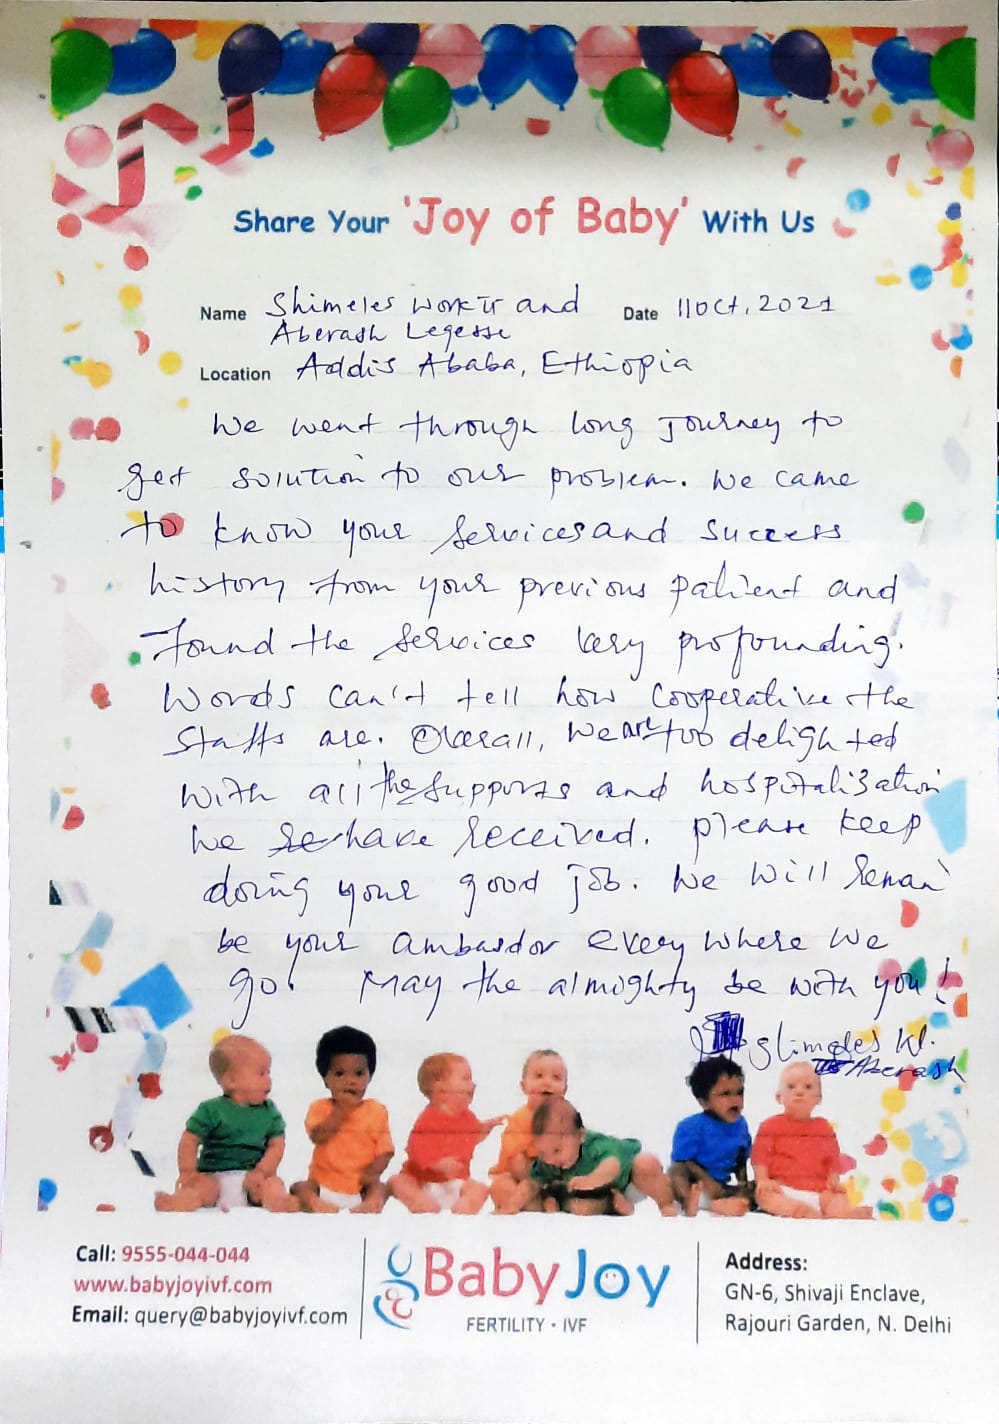 Share Your 'Joy of Baby' With Us
Name Shimeles Workie and Date 11 Oct, 2021
Aberash Legesse
Location Addis Ababa, Ethiopia
We went through long journey to
get solution to our problem. We came
to know your services and success
history from your previous patient and
found the services very profounding.
Words can't tell how cooperative the
staffs are. Overall, We are too delighted
with all the supports and hospitalization
we have received. please keep
doing your good job. We will
be your ambasdor every where we
go. May the almighty be with you!
Shimeles W.
Aberash
Call: 9555-044-044
www.babyjoyivf.com
Email: query@babyjoyivf.com
BabyJoy
FERTILITY • IVF
Address:
GN-6, Shivaji Enclave,
Rajouri Garden, N. Delhi